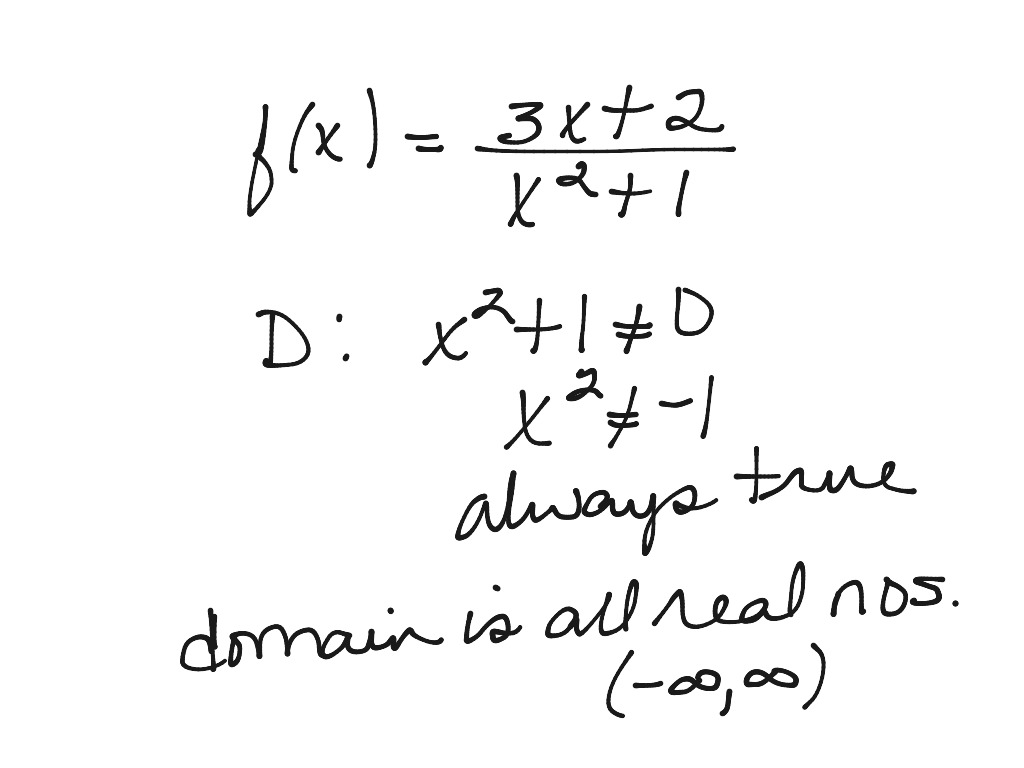 f(x) = 3x+2 / x²+1
D: x²+1 ≠ 0
x² ≠ -1
always true
domain is all real nos.
(-∞, ∞)